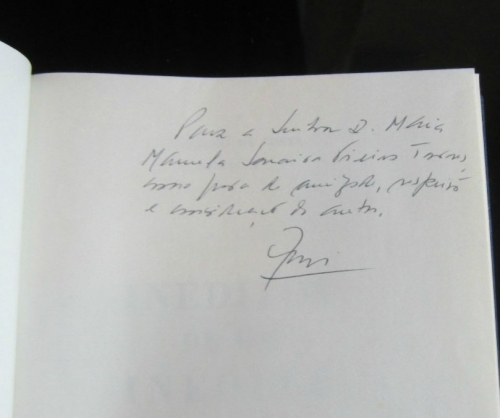 Para a Senhora D. Maria
Manuela Vieira
como prova de amizade, respeito
e consideração do autor.
INEDI